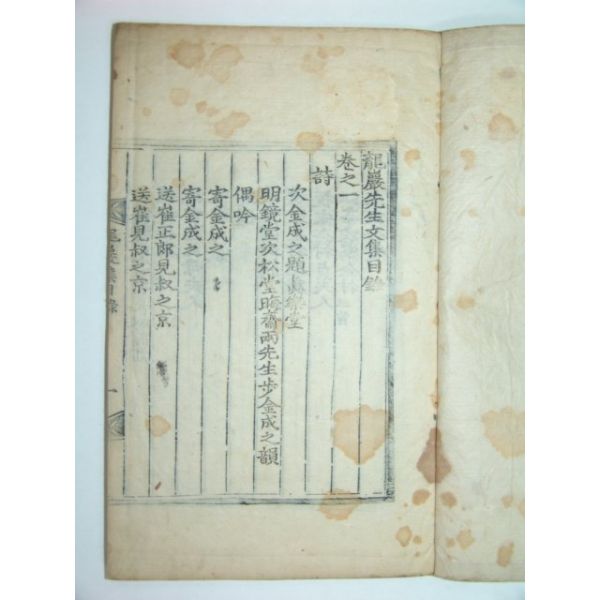 龍巖先生文集目錄
卷之一
詩
次金成之題眞樂堂
明鏡堂次松堂晦齋兩先生步金成之韻
偶吟
寄金成之
寄金成之
送崔正郞見叔之京
送崔見叔之京
龍巖集目錄
一